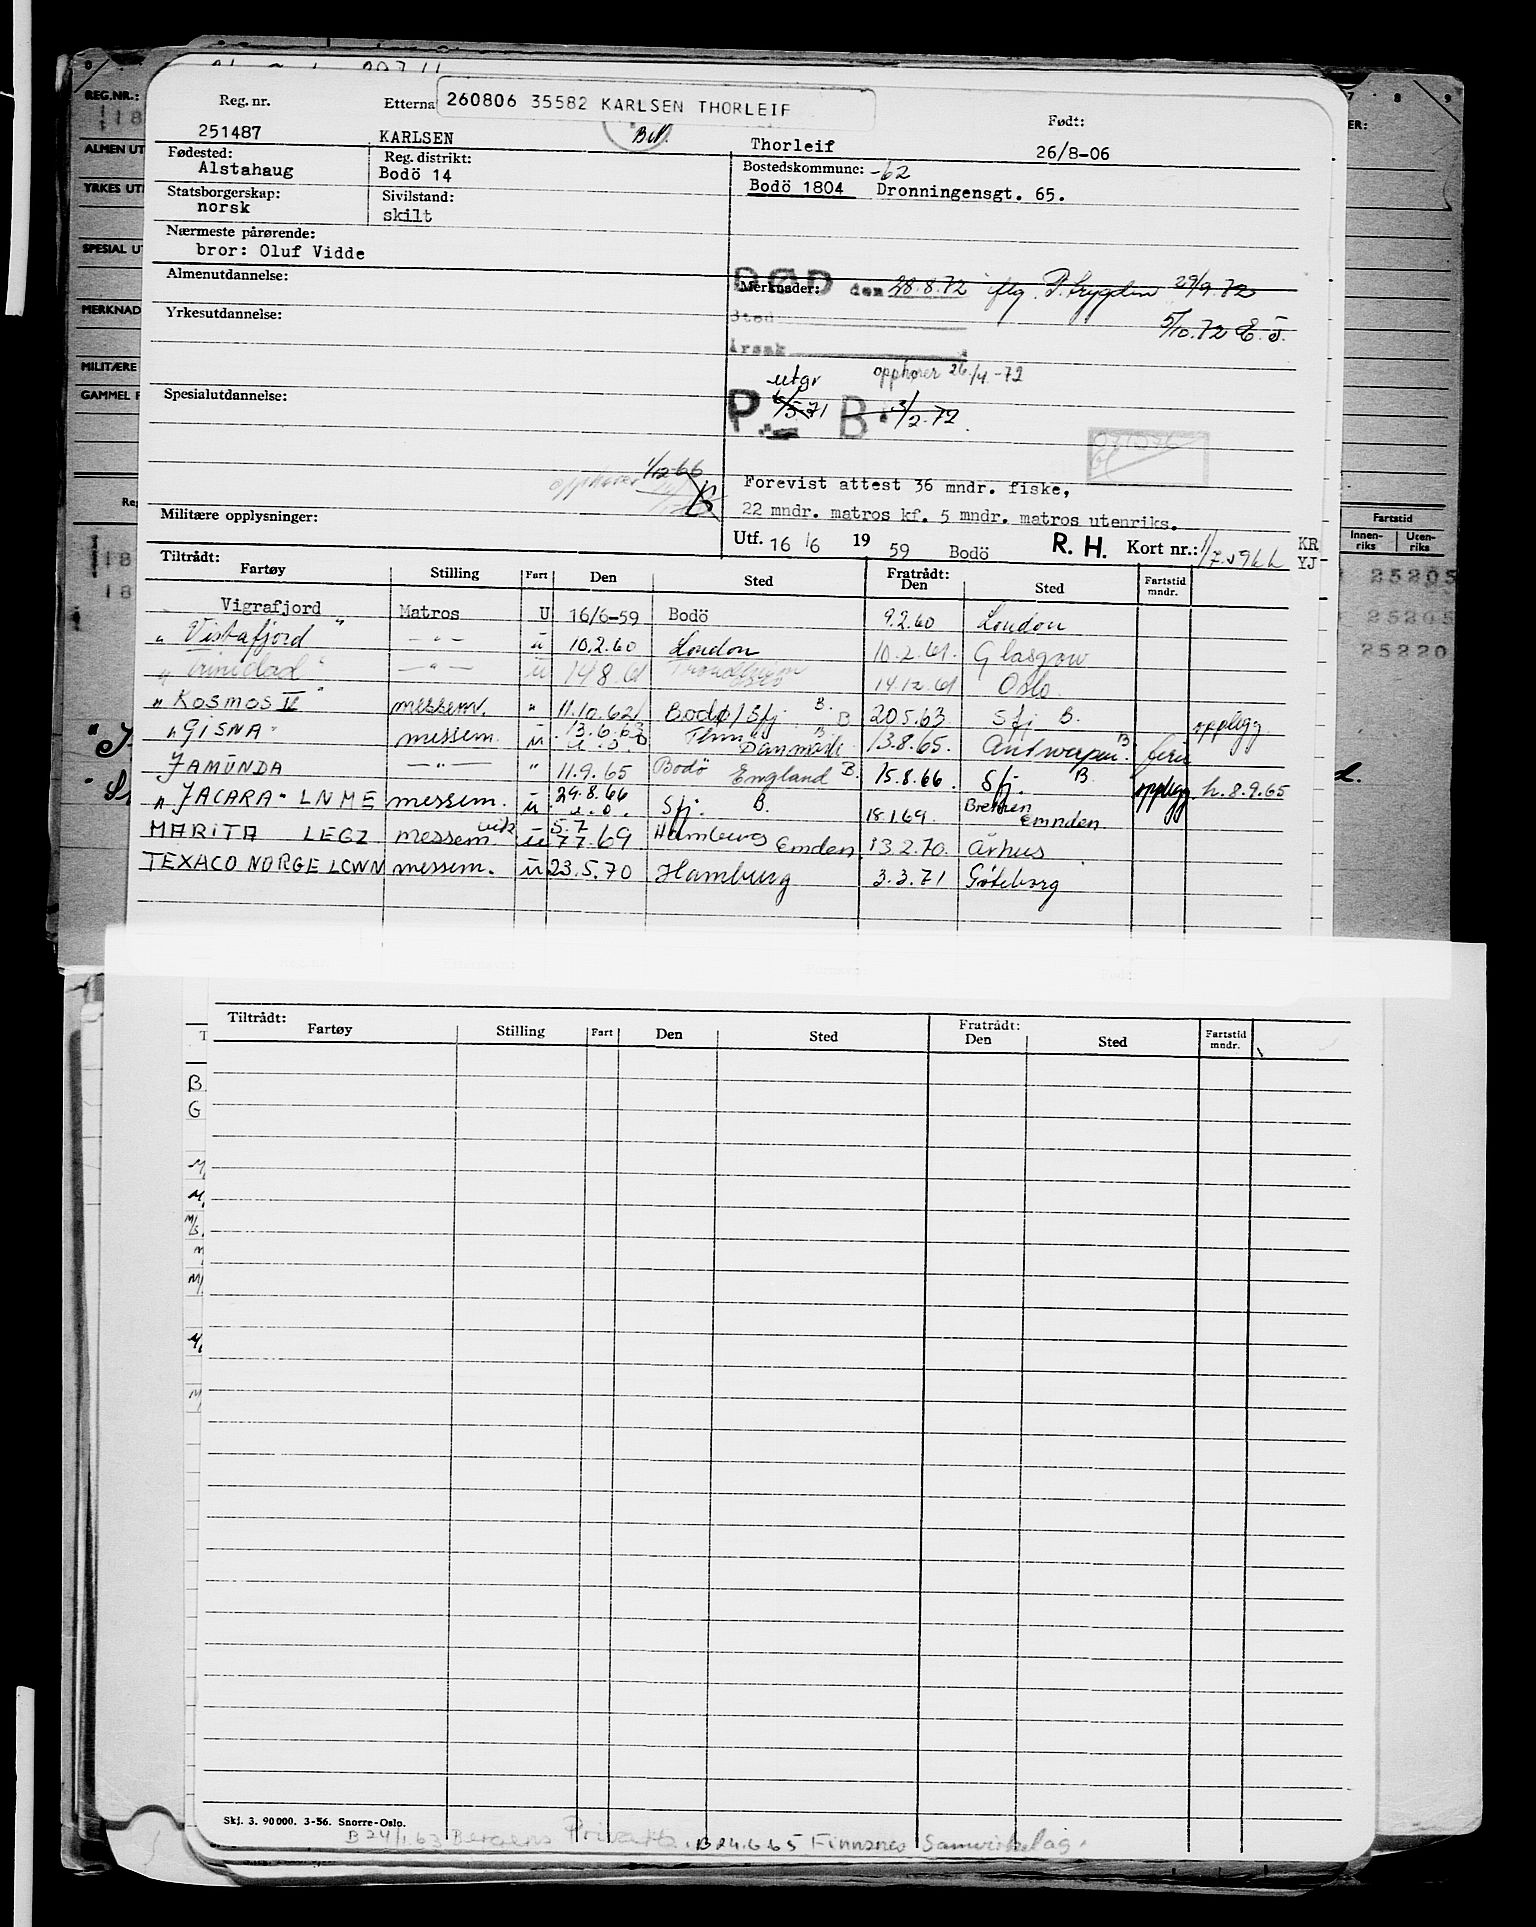 260806 35582 KARLSEN THORLEIF
Reg. nr. Etterna Født:
251487 KARLSEN Thorleif 26/8-06
Fødested: Reg. distrikt: Bostedskommune: -62
Alstahaug Bodö 14 Bodö 1804 Dronningensgt. 65.
Statsborgerskap: Sivilstand:
norsk skilt
Nærmeste pårørende:
bror: Oluf Vidde
Almenutdannelse: Merknader: DØD den 28.8.72 flg. 29/9.72
Sted 5/10.72 E.J.
Yrkesutdannelse:
Årsak
opphører 26/4-72
utgr
Spesialutdannelse: P. 6/5-71 B. 3/2.72.
opphører 1/12-66
Forevist attest 36 mndr. fiske,
22 mndr. matros kf. 5 mndr. matros utenriks.
Militære opplysninger: Utf. 16/6 19 59 Bodö R. H. Kort nr.: KR
YJ
Tiltrådt: Fratrådt:
Fartøy Stilling Fart Den Sted Den Sted Fartstid mndr.
Vigrafjord " Matros U 16/6-59 Bodö 9.2.60 London
" Vistafjord —"— u 10.2.60 London 10.2.61. Glasgow
" Trinidad " —"— u 14.8.61 Trondheim 14.12.61 Oslo
" KOSMOS V " messem. " 11.10.62 Bodø/Sfj B. B 20.5.63 Sfj B. opplegg
" GISNA " messem. u 13.6.63 Danmark B 13.8.65. Antwerpen B. ferie
JAMUNDA —"— " 11.9.65 Bodö England B. 15.8.66 Sfj. B. opplegg h. 8.9.65
" JACARA " LNME messem. u 29.8.66 u.o. Sfj. B. 18.1.69. Bremen Emnden
MARITA LEGZ messem. vik u 5.7 7.7.69 Hamburg Emden 13.2.70. Århus
TEXACO NORGE LCWN messem. u 23.5.70 Hamburg 3.3.71 Göteborg
Tiltrådt: Fratrådt:
Fartøy Stilling Fart Den Sted Den Sted Fartstid mndr.
Skj. 3. 90000. 3-56. Snorre-Oslo.
B 24/1.63 Bergens Privatb. B 24.6.65 Finnsnes Samvirkelag.
REG.NR.:
ALMEN UT
YRKES UT
SPESIAL UT
MERKNAD
MILITÆRE
GAMMEL F
Fartstid
Innen-riks Uten-riks
25205
25205
25220